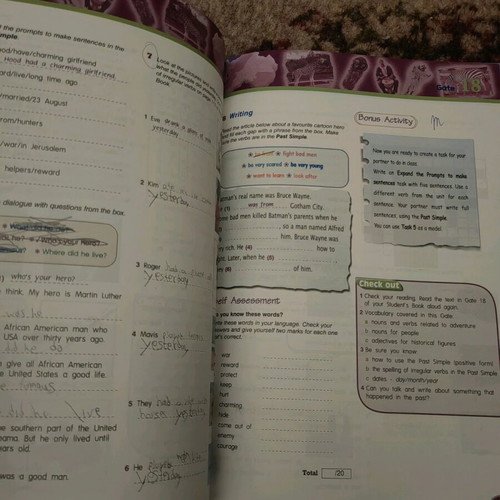 the prompts to make sentences in the
mple.
ood/have/charming girlfriend
Hood had a charming girlfriend
ard/live/long time ago
/married/23 August
rom/hunters
/war/in Jerusalem
helpers/reward
dialogue with questions from the box.
Where did he live?
who's your hero?
think. My hero is Martin Luther
African American man who
USA over thirty years ago.
did he do
give all African American
e United States a good life.
famous
did he live
e southern part of the United
ama. But he only lived until
ears old.
was a good man.
7 Look at the pictures and
what the people
of irregular verbs
Book.
1 Eve drank a glass of
yesterday
2 Kim
yesterday
3 Roger
yesterday
4 Mavis
yesterday
5 They
yesterday
6 He
yesterday
Gate 18
Writing
Read the article below about a favourite cartoon hero
and fill each gap with a phrase from the box. Make
sure the verbs are in the Past Simple.
fight bad men
be very scared be very young
want to learn look after
Batman's real name was Bruce Wayne.
(1) was from Gotham City.
Some bad men killed Batman's parents when he
, so a man named Alfred
him. Bruce Wayne was
very rich. He (4) how to
fight. Later, when he (5)
(6) of him.
Self Assessment
Do you know these words?
Write these words in your language. Check your
answers and give yourself two marks for each one
that's correct.
war
reward
protect
keep
hurt
charming
hide
come out of
enemy
courage
Total /20
Bonus Activity
m
Now you are ready to create a task for your
partner to do in class.
Write an Expand the Prompts to make
sentences task with five sentences. Use a
different verb from the unit for each
sentence. Your partner must write full
sentences using the Past Simple.
You can use Task 5 as a model.
Check out
1 Check your reading. Read the text in Gate 18
of your Student's Book aloud again.
2 Vocabulary covered in this Gate
a nouns and verbs related to adventure
b nouns for people
c adjectives for historical figures
3 Be sure you know
a how to use the Past Simple (positive form)
b the spelling of irregular verbs in the Past Simple
c dates - day/month/year
4 Can you talk and write about something that
happened in the past?